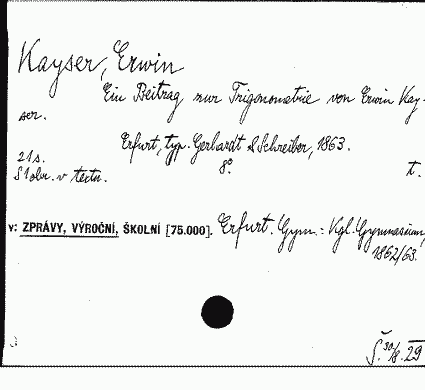 Kayser, Erwin
Ein Beitrag zur Trigonometrie von Erwin Kay-
ser.
Erfurt, typ. Gerhardt & Schreiber, 1863.
21 s. 8° t.
S 1 obr. v textu.
v: ZPRÁVY, VÝROČNÍ, ŠKOLNÍ [75.000]. Erfurt. Gym.: Kgl. Gymnasium,
1862/63.
Š. 30/8. 29